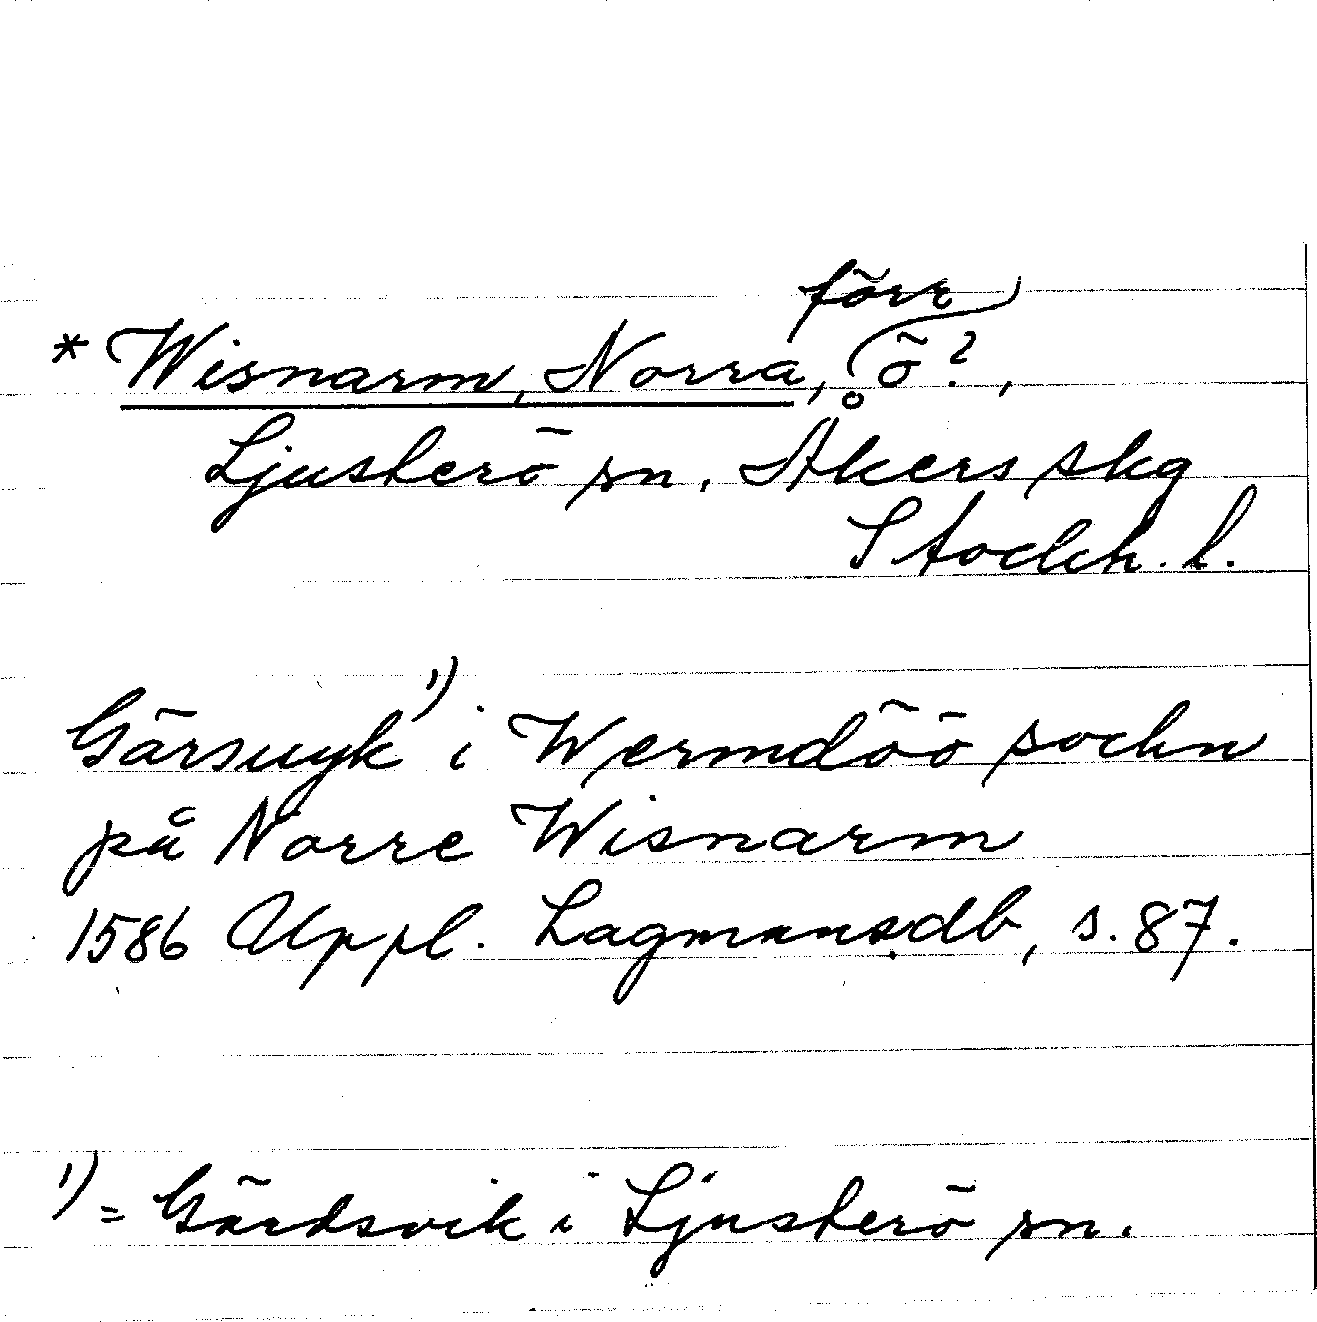 * Wisnarm, Norra, förr ö?,
Ljusterö sn. Åkers skg
Stockh. l.
Gärsuyk 1) i Wermdöö sochn
på Norre Wisnarm
1586 Uppl. Lagmansdb, s. 87.
1) = Gärdsvik i Ljusterö sn.